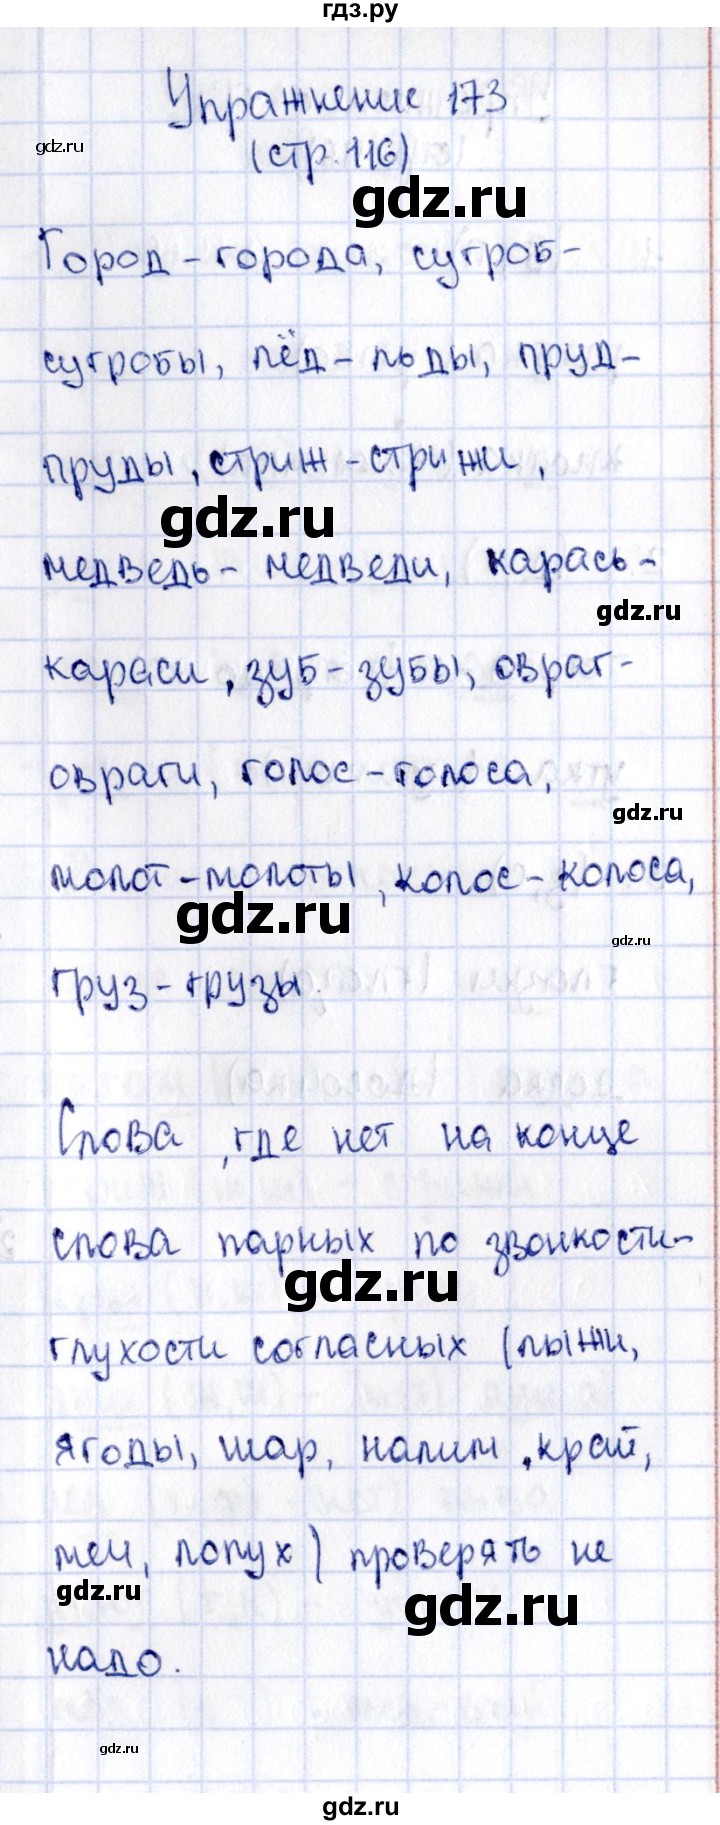 гдз.ру
Упражнение 173
gdz.ru
(стр. 116)
gdz.ru
Город - города, сугроб-
сугробы, лёд - льды, пруд-
пруды, стриж - стрижи,
gdz.ru
медведь - медведи, карась-
gdz.ru
караси, зуб - зубы, овраг-
овраги, голос - голоса,
gdz.ru
молот - молоты, колос - колоса,
gdz.ru
gdz.ru
груз - грузы.
Слова, где нет на конце
слова парных по звонкости-
gdz.ru
глухости согласных (лыжи,
ягоды, шар, налим, край,
чей, лопух) проверять не
gdz.ru
gdz.ru
надо.
gdz.ru
gdz.ru